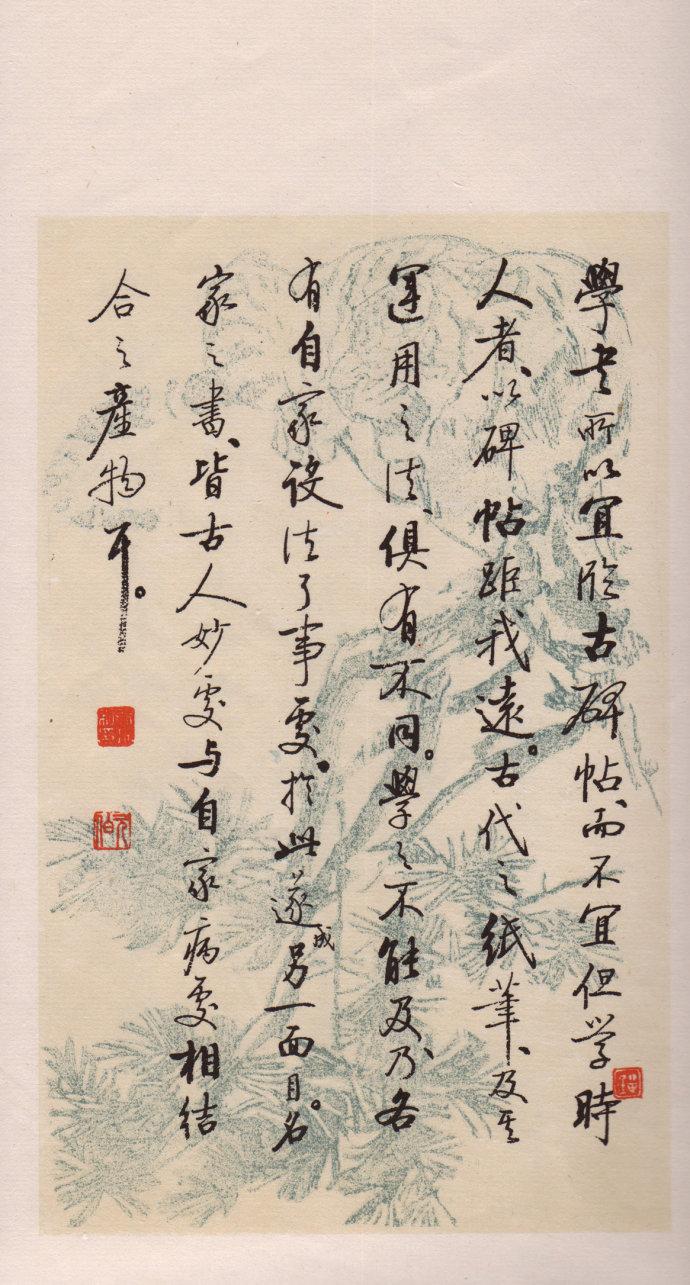 學书所以宜临古碑帖而不宜但学時
人者、以碑帖距我遠。古代之紙筆、及其
運用之法、俱有不同。學之不能及乃各
有自家设法了事處。於此遂成另一面目。名
家之書、皆古人妙處与自家病處相結
合之產物耳。